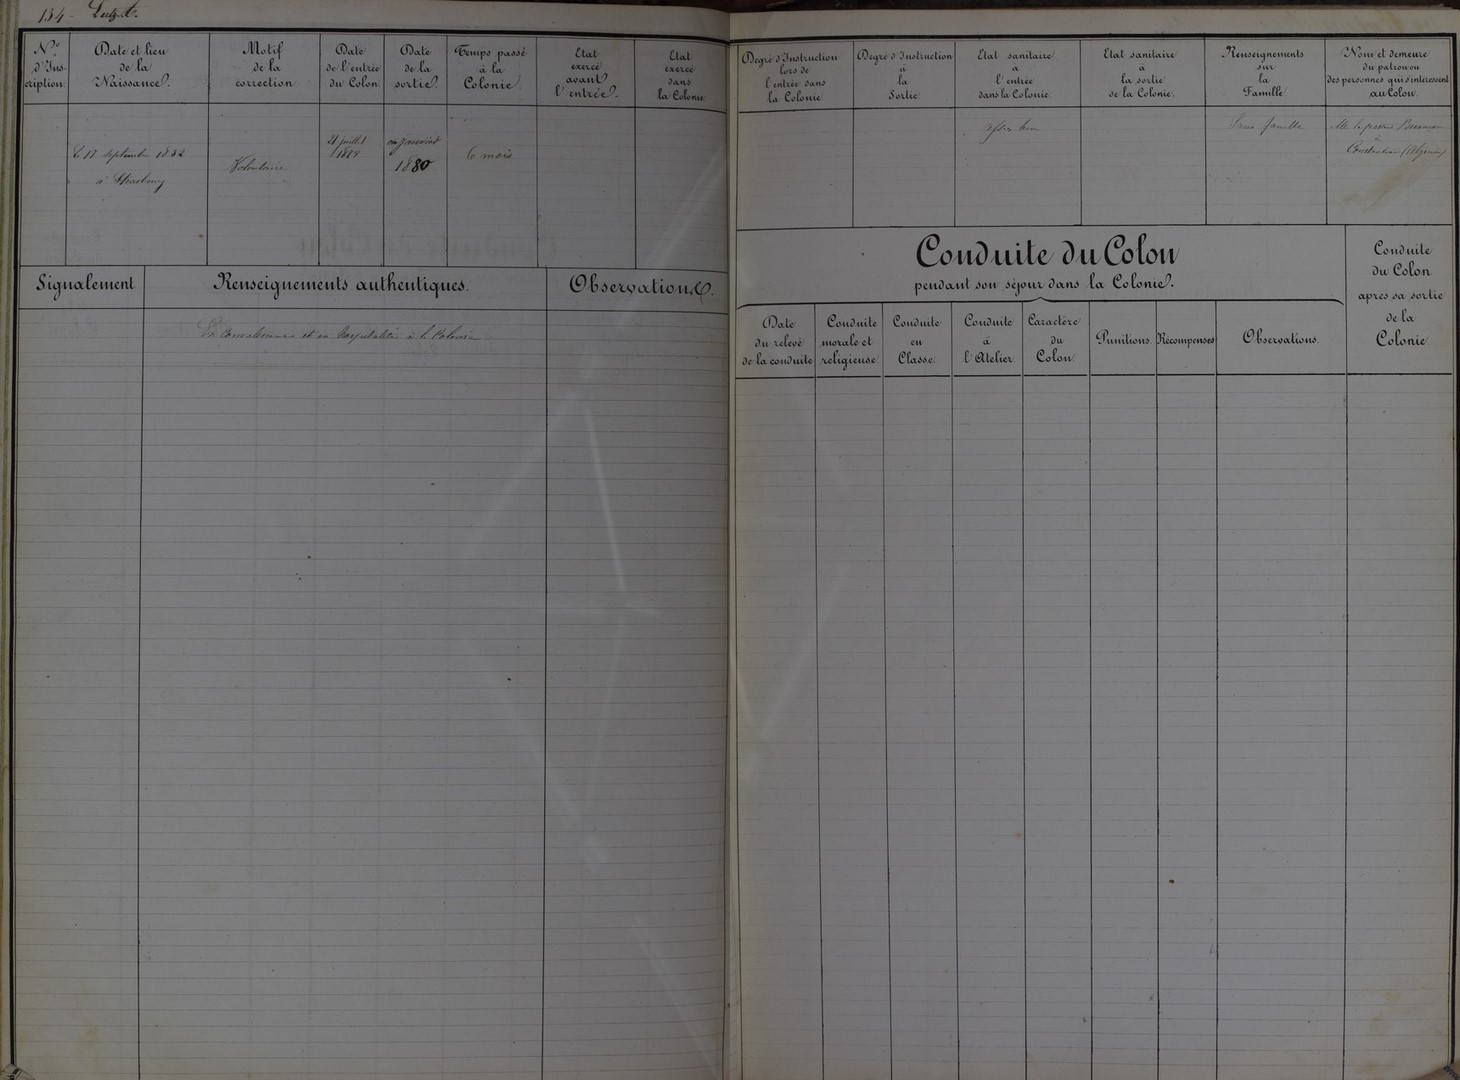 134 -
N.º
d'Ins-
cription.
Date et lieu
de la
Naissance.
Motif
de la
correction
Date
de l'entrée
du Colon.
Date
de la
sortie.
Temps passé
à la
Colonie.
Etat
exercé
avant
l'entrée.
Etat
exercé
dans
la Colonie
Le 17 septembre 1832
à Strasbourg
Volontaire
21 juillet
en janvier
1880
6 mois
Signalement
Renseignements authentiques.
Observations.
En convalescence et en hospitalité à la Colonie
Degré d'Instruction
lors de
l'entrée dans
la Colonie
Degré d'Instruction
à
la
Sortie.
Etat sanitaire
à
l'entrée
dans la Colonie
Etat sanitaire
à
la sortie
de la Colonie.
Renseignements
sur
la
Famille
Nom et demeure
du patron ou
des personnes qui s'intéressent
au Colon.
assez bon
Sans famille
à
Constantine (Algérie)
Conduite du Colon
pendant son séjour dans la Colonie.
Date
du relevé
de la conduite
Conduite
morale et
religieuse.
Conduite
en
Classe.
Conduite
à
l'Atelier.
Caractère
du
Colon.
Punitions.
Récompenses
Observations.
Conduite
du Colon
après sa sortie
de la
Colonie